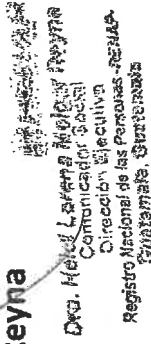 Reyna
Dra. Heidy Lorena Melgar Reyna
Comunicador Social
Dirección Ejecutiva
Registro Nacional de las Personas -RENAP-
Guatemala, Guatemala